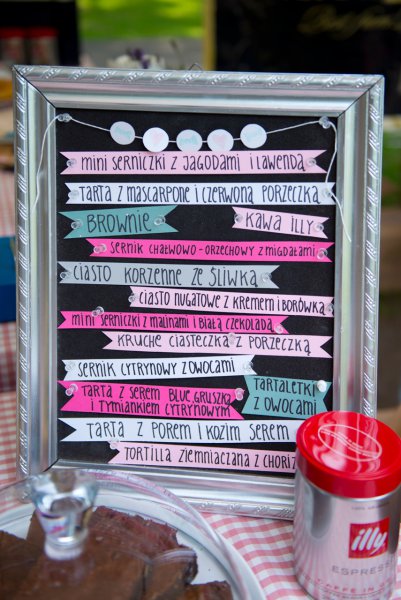 mini serniczki z jagodami i lawendą
tarta z mascarpone i czerwoną porzeczką
brownie
kawa illy
sernik chałwowo-orzechowy z migdałami
ciasto korzenne ze śliwką
ciasto nugatowe z kremem i borówką
mini serniczki z malinami i białą czekoladą
kruche ciasteczka z porzeczką
sernik cytrynowy z owocami
tarta z serem blue, gruszką
i tymiankiem cytrynowym
tartaletki
z owocami
tarta z porem i kozim serem
tortilla ziemniaczana z choriz
illy
ESPRESS
CAFFE IN